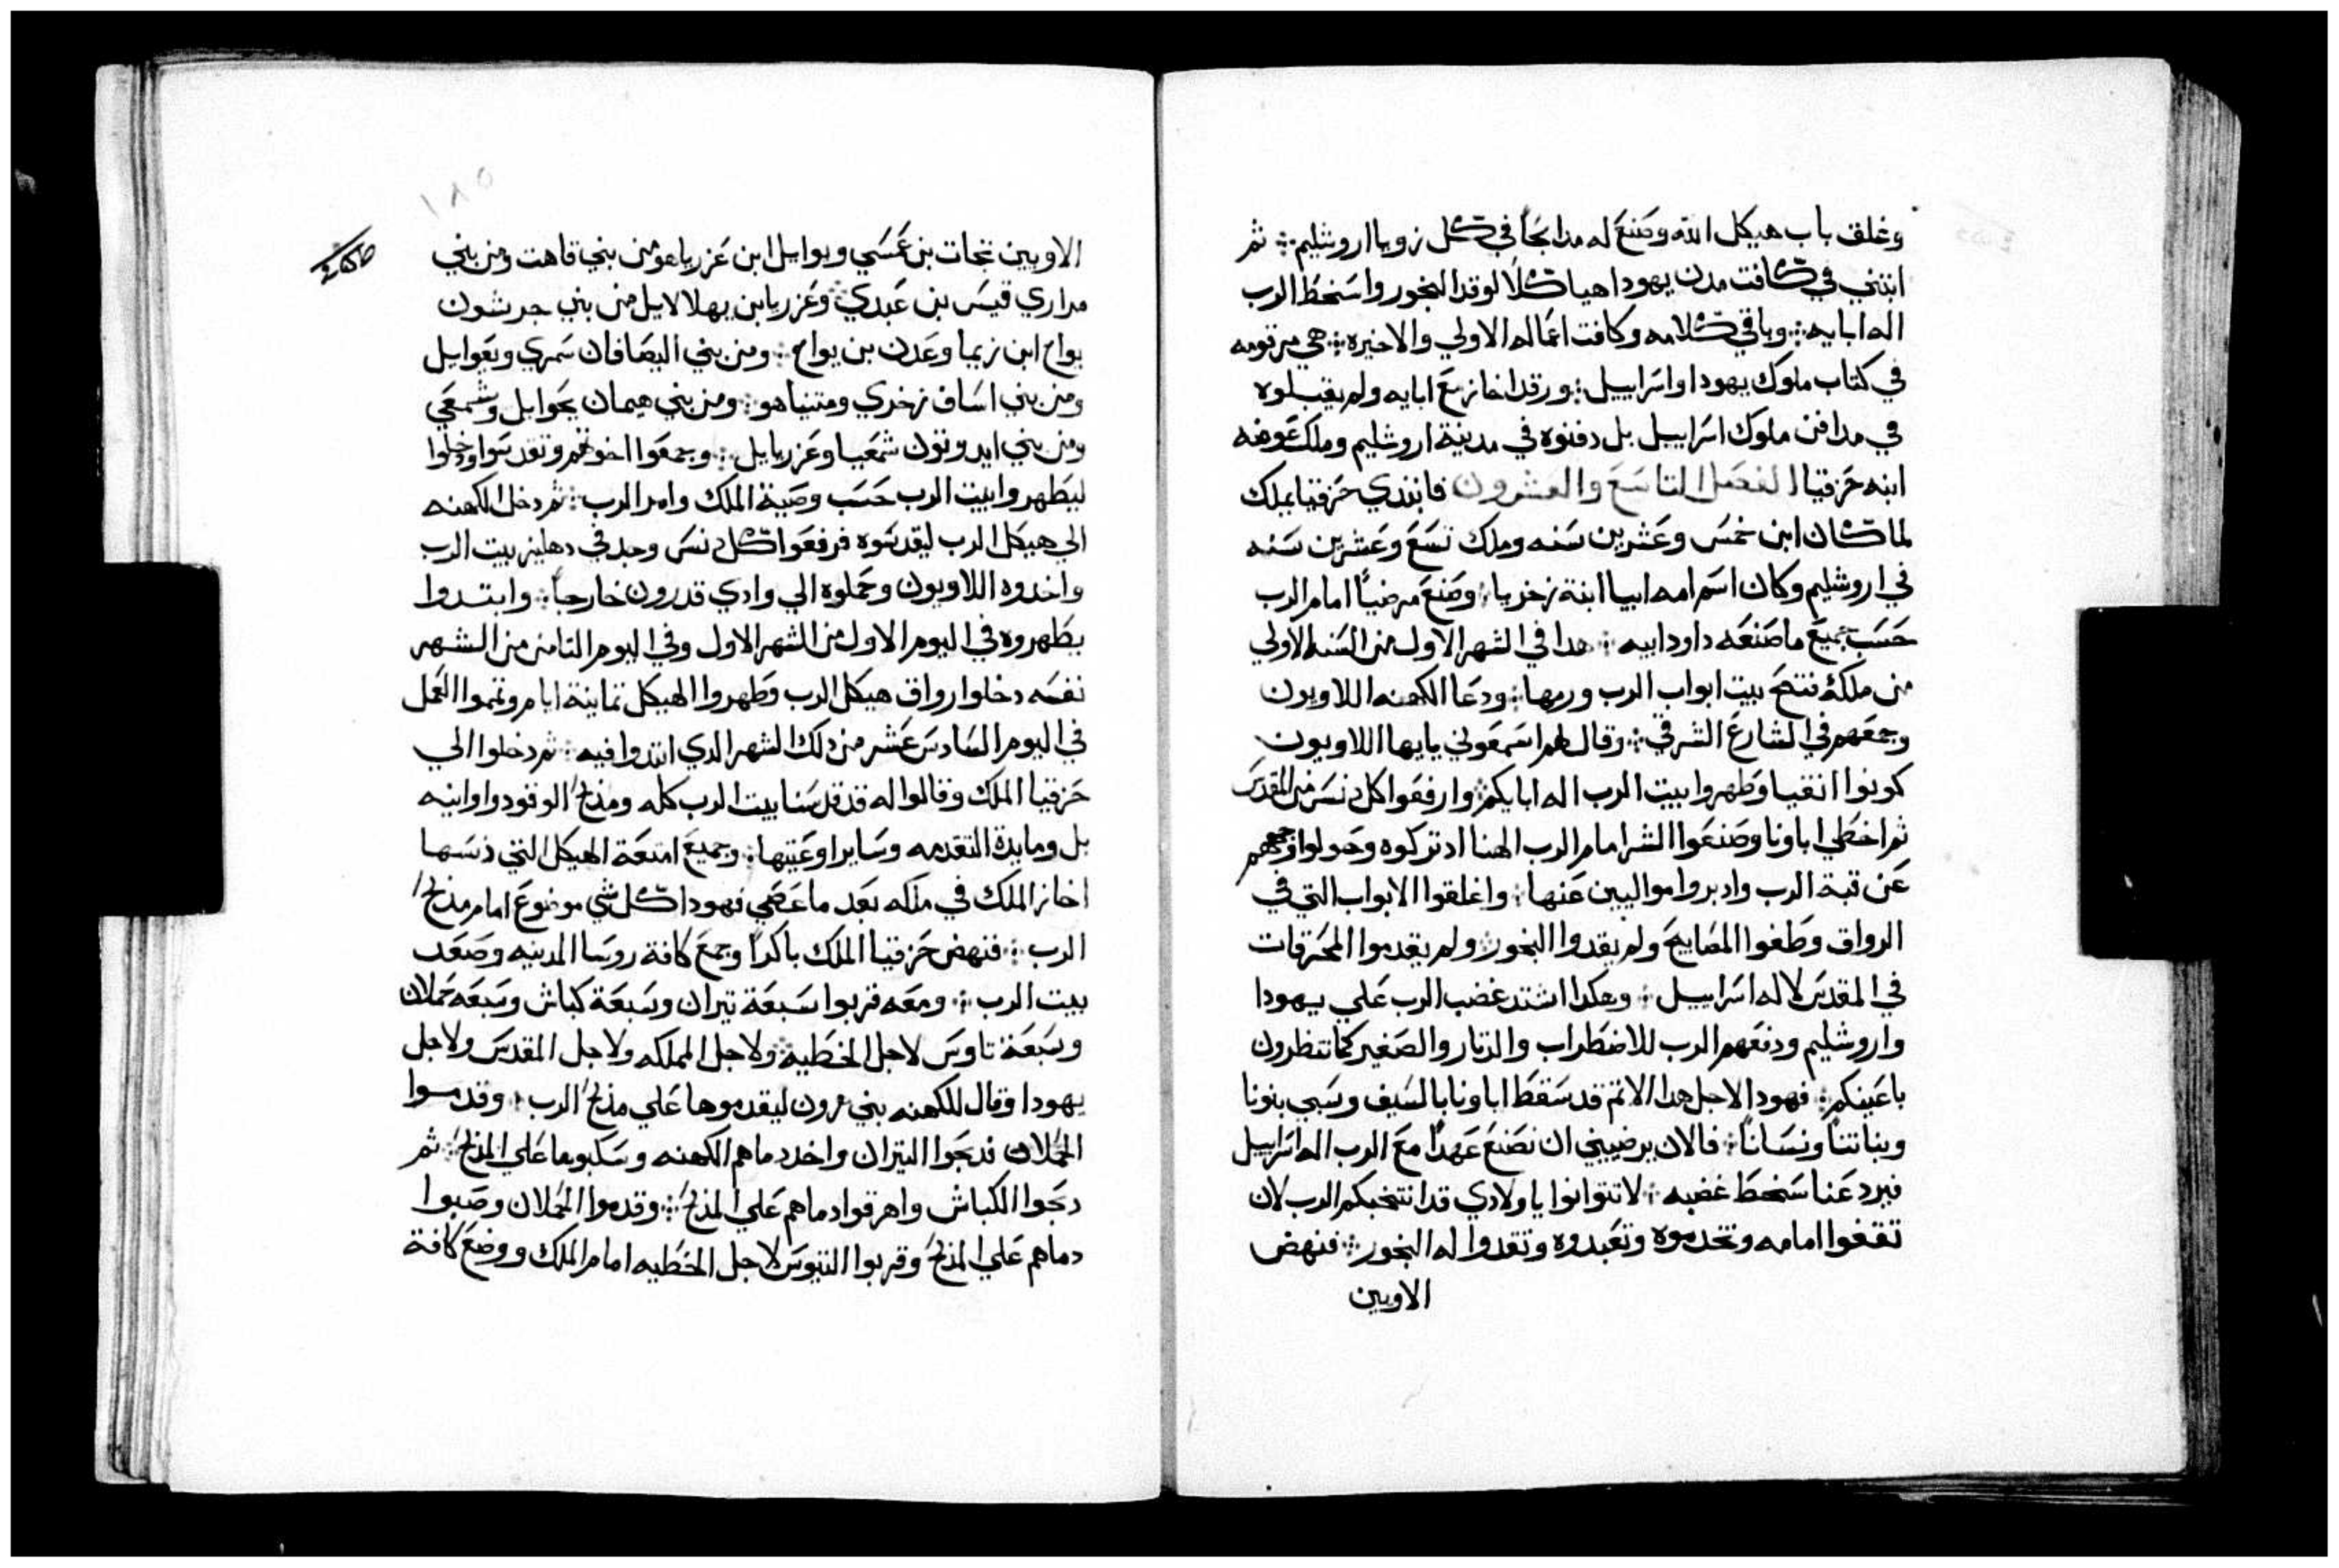 وغلق باب هيكل الله وصنع له مدابحاً في كل زويا اروشليم ثم
ابتني في كافت مدن يهودا هياكلاً لوقد البخور واسخط الرب
اله ابايه وباقي كلامه وكافت اعماله الاولي والاخيره هي مرقومه
في كتاب ملوك يهودا واسراييل ورقد اخاز مع ابايه ولم يقبلوه
في مدافن ملوك اسراييل بل دفنوه في مدينة اروشليم وملك عوضه
ابنه حزقيا الفصل التاسع والعشرون فابتدي حزقيا يملك
لما كان ابن خمس وعشرين سنه وملك تسع وعشرين سنه
في اروشليم وكان اسم امه ابيا ابنة زخريا وصنع مرضياً امام الرب
حسب جميع ما صنعه داود ابيه هدا في الشهر الاول من السنه الاولي
من ملكه فتح بيت ابواب الرب ورمها ودعا الكهنه اللاويون
وجمعهم في الشارع الشرقي وقال لهم اسمعوني يايها اللاويون
كونوا انقيا وطهروا بيت الرب اله ابايكم وارفعوا كل دنس من المقدس
ثم اخطي اباونا وصنعوا الشر امام الرب الهنا اد تركوه وحولوا وجههم
عن قبة الرب وادبروا مواليين عنها واغلقوا الابواب التي في
الرواق وطفوا المصابيح ولم يقدوا البخور ولم يقدموا المحرقات
في المقدس لاله اسراييل وهكدا اشتد غضب الرب علي يهودا
واروشليم ودفعهم الرب للاضطراب والدثار والصفير كما تنظرون
باعينكم فهودا لاجل هدا الاتم قد سقط اباونا بالسيف وسبي بنونا
وبناتنا ونساناً فالان يرضييني ان نصنع عهداً مع الرب اله اسراييل
فيرد عنا سخط غضبه لا تتوانوا ياولادي قد انتخبكم الرب لان
تقفوا امامه وتخدموه وتعبدوه وتقدوا له البخور فنهض
الاويين
١٨٥
الاويين تحات بن عمسي ويوايل ابن عزرياهو من بني قاهت ومن بني
مراري قيس بن عبدي وعزريا بن يهلالايل من بني جرشون
يواح ابن زيما وعدن بن يواح ومن بني اليصافان سمري ويعوايل
ومن بني اساف زخدي ومتنياهو ومن بني هيمان يحوايل وشمعي
ومن بني ايدوتون شمعيا وعزريايل وجمعوا اخوتهم وتقدسوا ودخلوا
ليطهروا بيت الرب حسب وصية الملك وامر الرب ثم دخل الكهنه
الي هيكل الرب ليقدسوه فرفعوا كل دنس وجد في دهليز بيت الرب
واخدوه اللاويون وحملوه الي وادي قدرون خارجاً وابتدوا
يطهروه في اليوم الاول من الشهر الاول وفي اليوم التامن من الشهر
نفسه دخلوا رواق هيكل الرب وطهروا الهيكل تمانية ايام وتمموا العمل
في اليوم السادس عشر من دلك الشهر الدي ابتدوا فيه ثم دخلوا الي
حزقيا الملك وقالوا له قد قدسنا بيت الرب كله ومذبح الوقود واوانيه
بل ومايدة التقدمه وساير اوعيتها وجميع امتعة الهيكل التي دنسها
اخاز الملك في ملكه بعد ما عصي فهودا كل شي موضوع امام مذبح
الرب فنهض حزقيا الملك باكراً وجمع كافة روسا المدينه وصعد
بيت الرب ومعه قربوا سبعة تيران وسبعة كباش وسبعه حملان
وسبعة تاوس لاجل الخطيه ولاجل المملكه ولاجل المقدس ولاجل
يهودا وقال للكهنه بني هرون ليقدموها علي مذبح الرب وقدموا
الحملان فدبحوا التيران واخد دماهم الكهنه وسكبوها علي المذبح ثم
دبحوا الكباش واهرقوا دماهم علي المذبح وقدموا الحملان وصبوا
دماهم علي المذبح وقربوا التيوس لاجل الخطيه امام الملك ووضع كافة